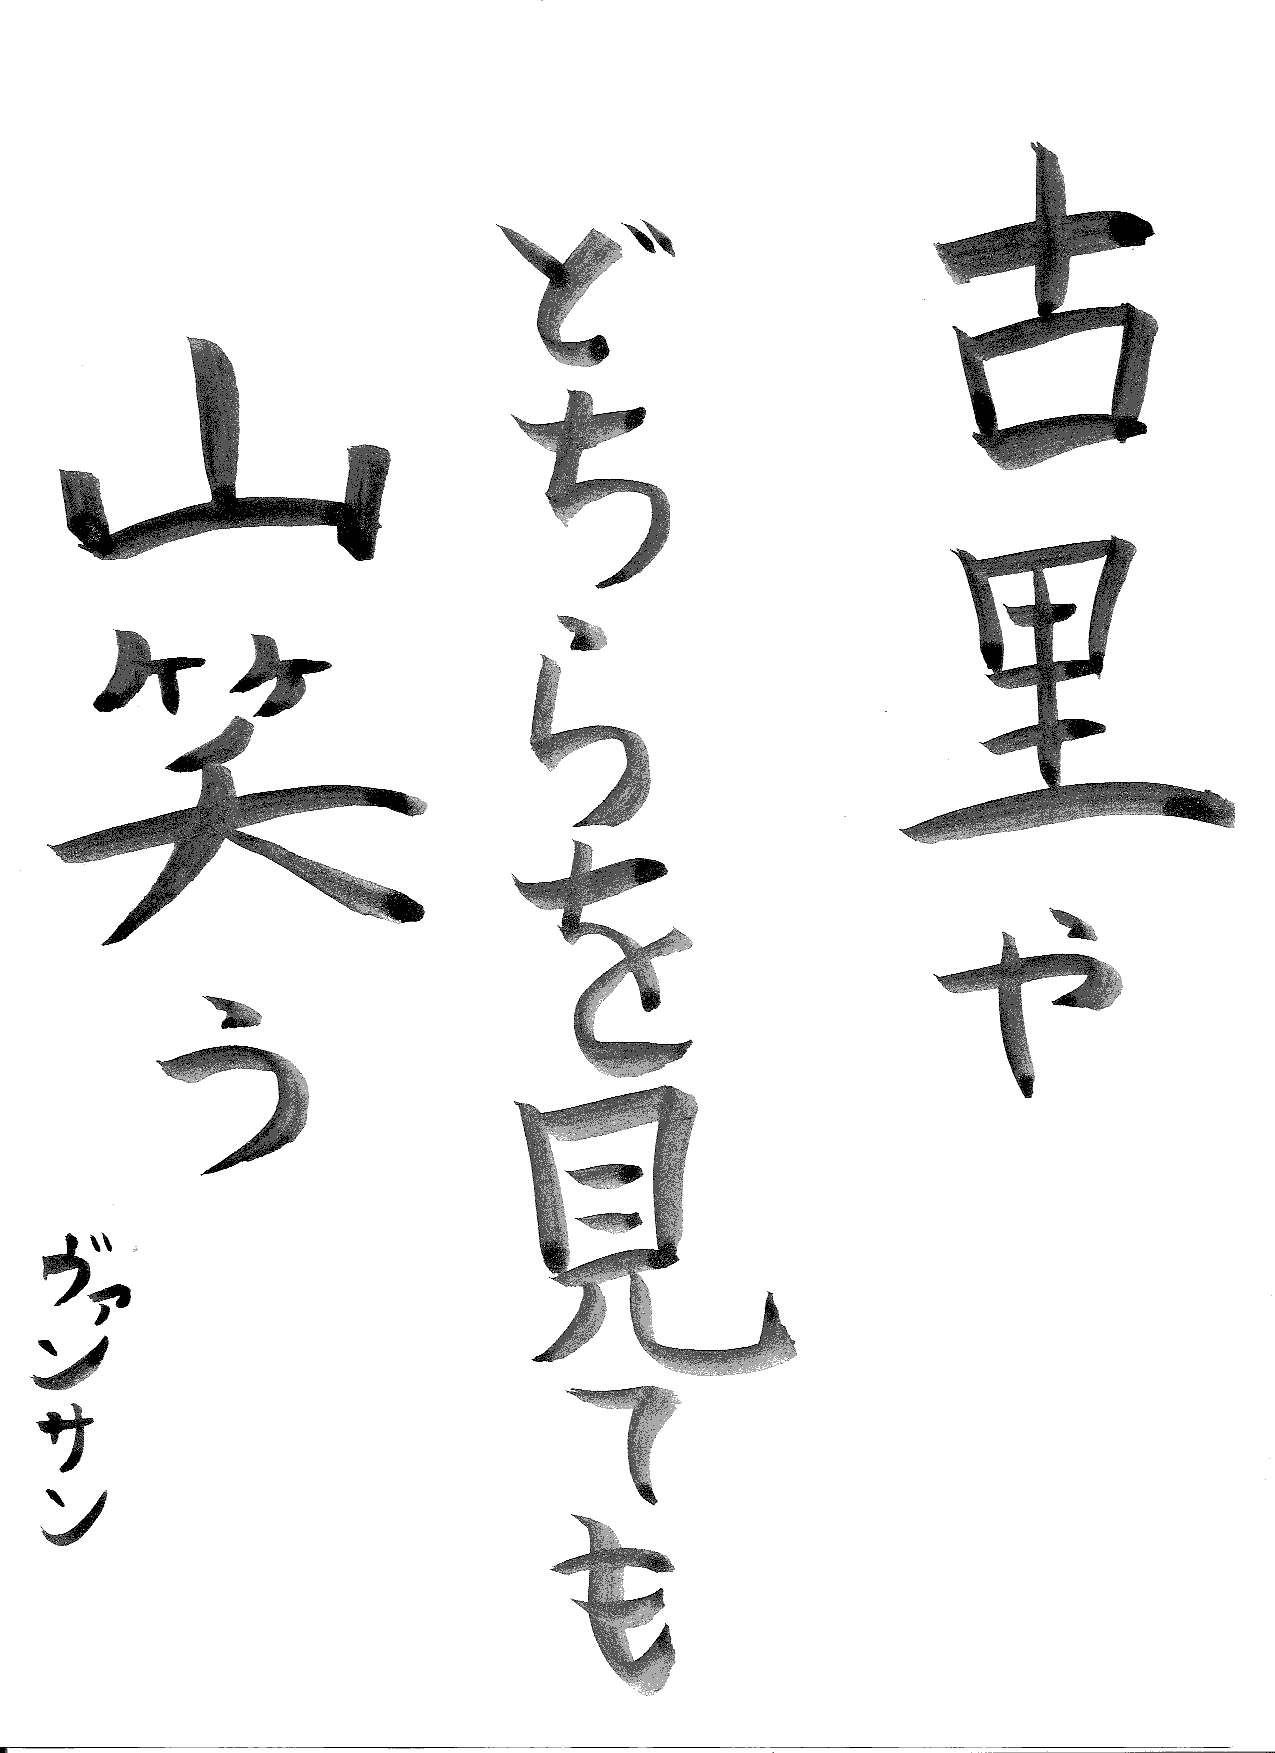 古里や
どちらを見ても
山笑う
ヴァンサン